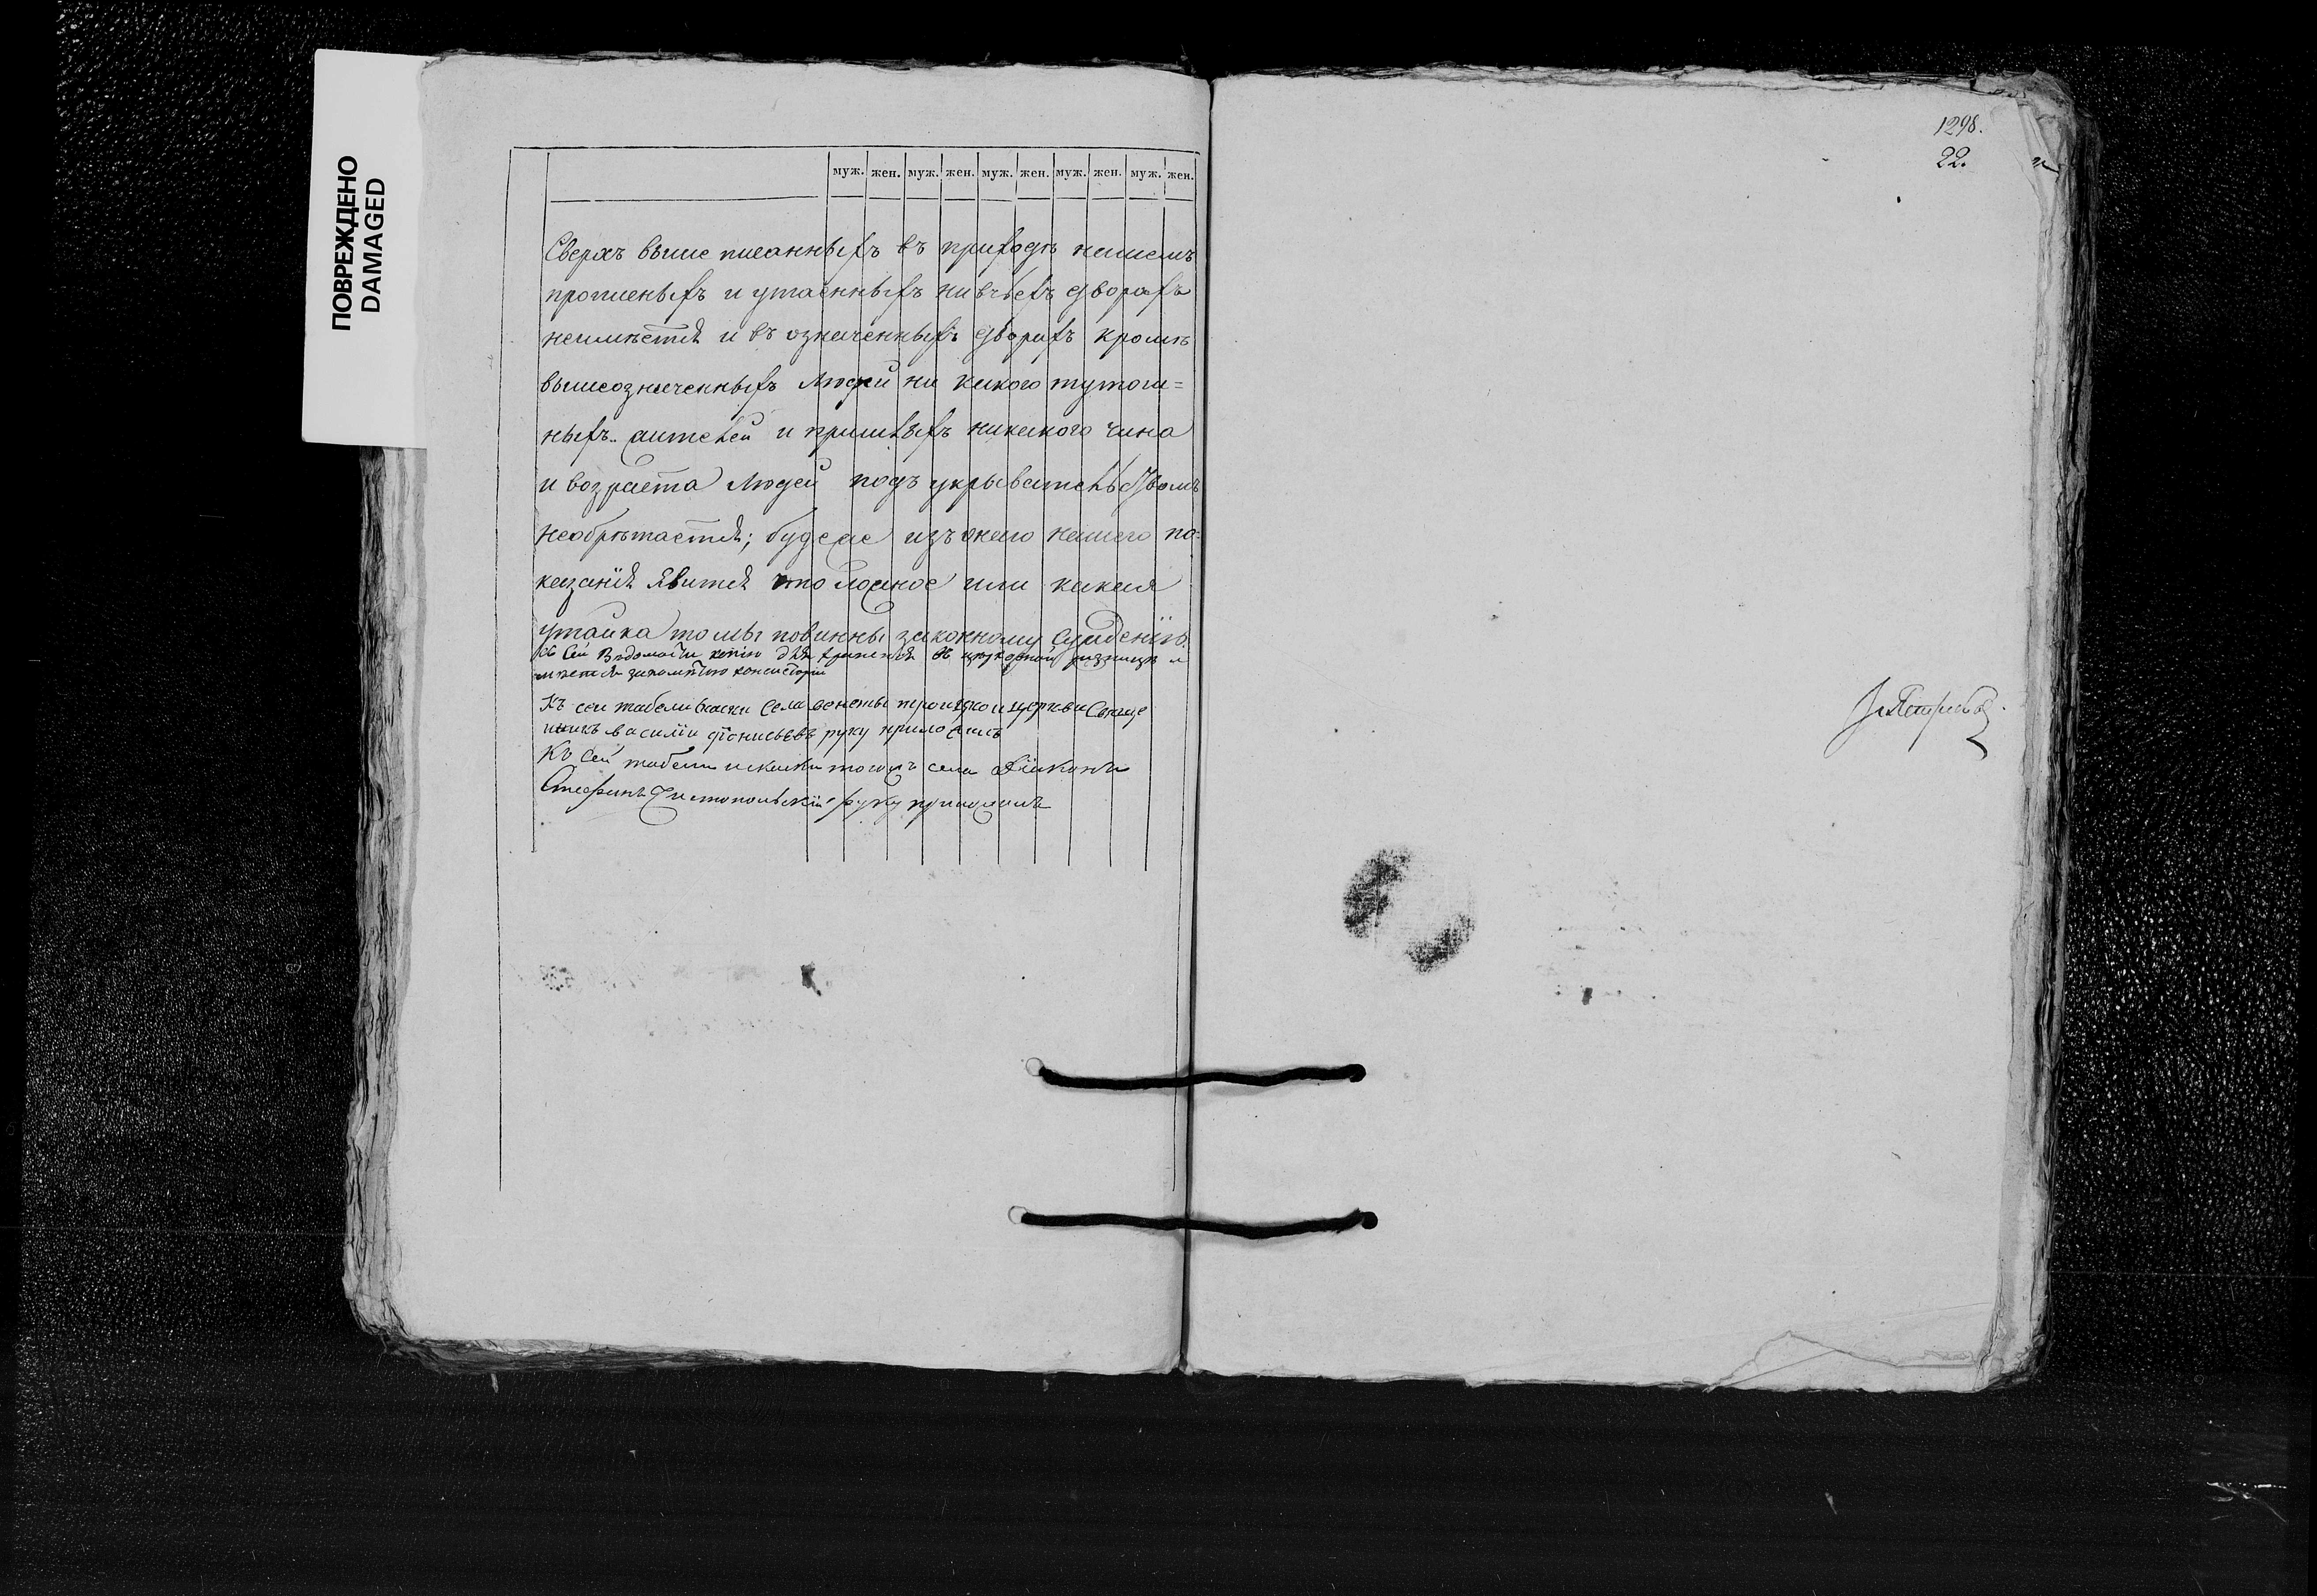 ПОВРЕЖДЕНО
DAMAGED
1298.
22.
муж. жен. муж. жен. муж. жен. муж. жен. муж. жен.
Сверхъ выше писанныхъ въ приходѣ нашемъ
прописныхъ и утаенныхъ ни въ чьихъ дворахъ
неимѣется и въ означенныхъ дворахъ кромѣ
вышеозначенныхъ людей ни какого тутош=
ныхъ жителей и пришлыхъ никакого чина
и возраста людей подъ укрывательствомъ
необрѣтается; буде же изъ онаго нашего по=
казанія явится что ложное или какая
утайка то мы повинны законному сужденію.
Сей Вѣдомости копію для храненія въ церковной ризницѣ
имѣется консисторіи
Къ сей табели села троицкой церкви Свяще
нникъ василій руку приложилъ
Къ сей табели тогожъ села Діаконъ
Стефанъ руку приложилъ